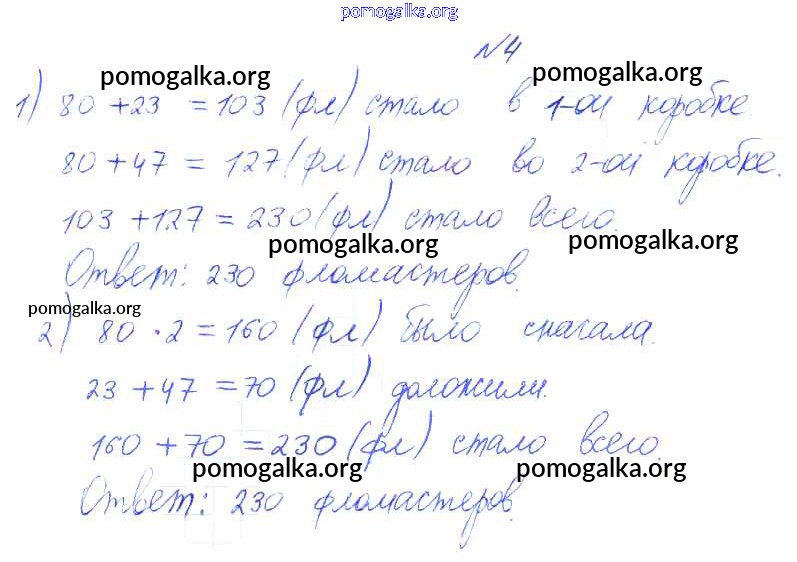 pomogalka.org
№4
pomogalka.org
pomogalka.org
1) 80 + 23 = 103 (фл) стало в 1-ой коробке.
80 + 47 = 127 (фл) стало во 2-ой коробке.
103 + 127 = 230 (фл) стало всего.
pomogalka.org
pomogalka.org
Ответ: 230 фломастеров.
pomogalka.org
2) 80 · 2 = 160 (фл) было сначала.
23 + 47 = 70 (фл) доложили.
160 + 70 = 230 (фл) стало всего.
pomogalka.org
pomogalka.org
Ответ: 230 фломастеров.